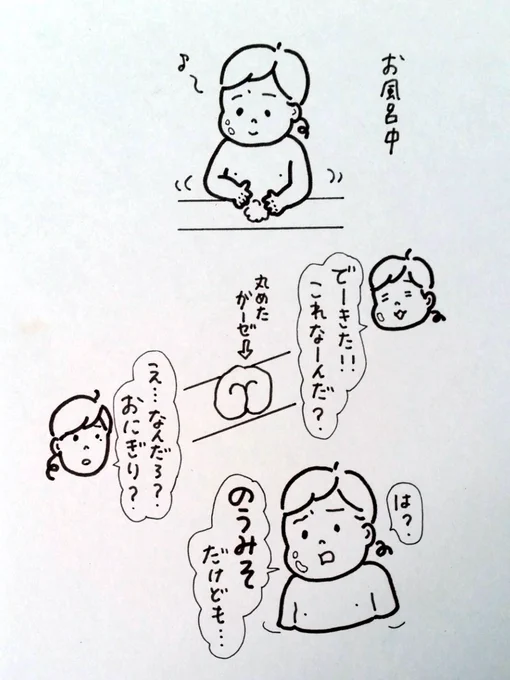 お風呂中
でーきた!!
これなーんだ?
丸めた
ガーゼ
え…なんだろ?
おにぎり?
は?
のうみそ
だけども…